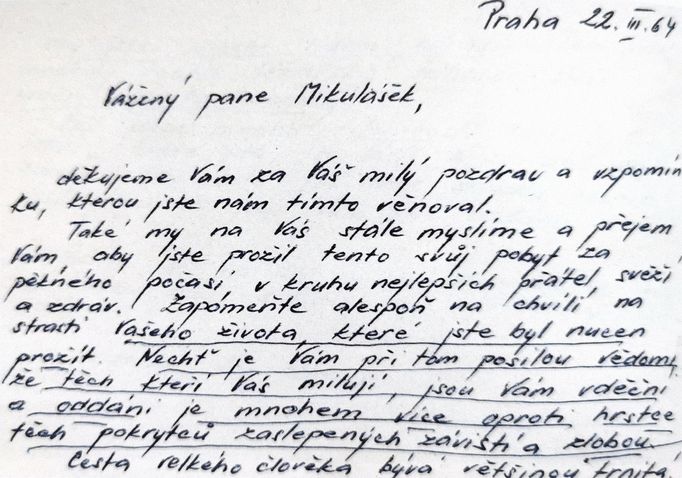 Praha 22.III.64
Vážený pane Mikulášek,
děkujeme Vám za Váš milý pozdrav a vzpomín
ku, kterou jste nám tímto věnoval.
Také my na Vás stále myslíme a přejem
Vám aby jste prožil tento svůj pobyt za
pěkného počasí, v kruhu nejlepších přátel, svěží
a zdráv. Zapomeňte alespoň na chvíli na
strasti Vašeho života, které jste byl nucen
prožít. Nechť je Vám při tom posilou vědomí,
že těch kteří Vás milují, jsou Vám vděčni
a oddáni je mnohem více oproti hrstce
těch pokrytců zaslepených závistí a zlobou.
Cesta velkého člověka bývá většinou trnitá.